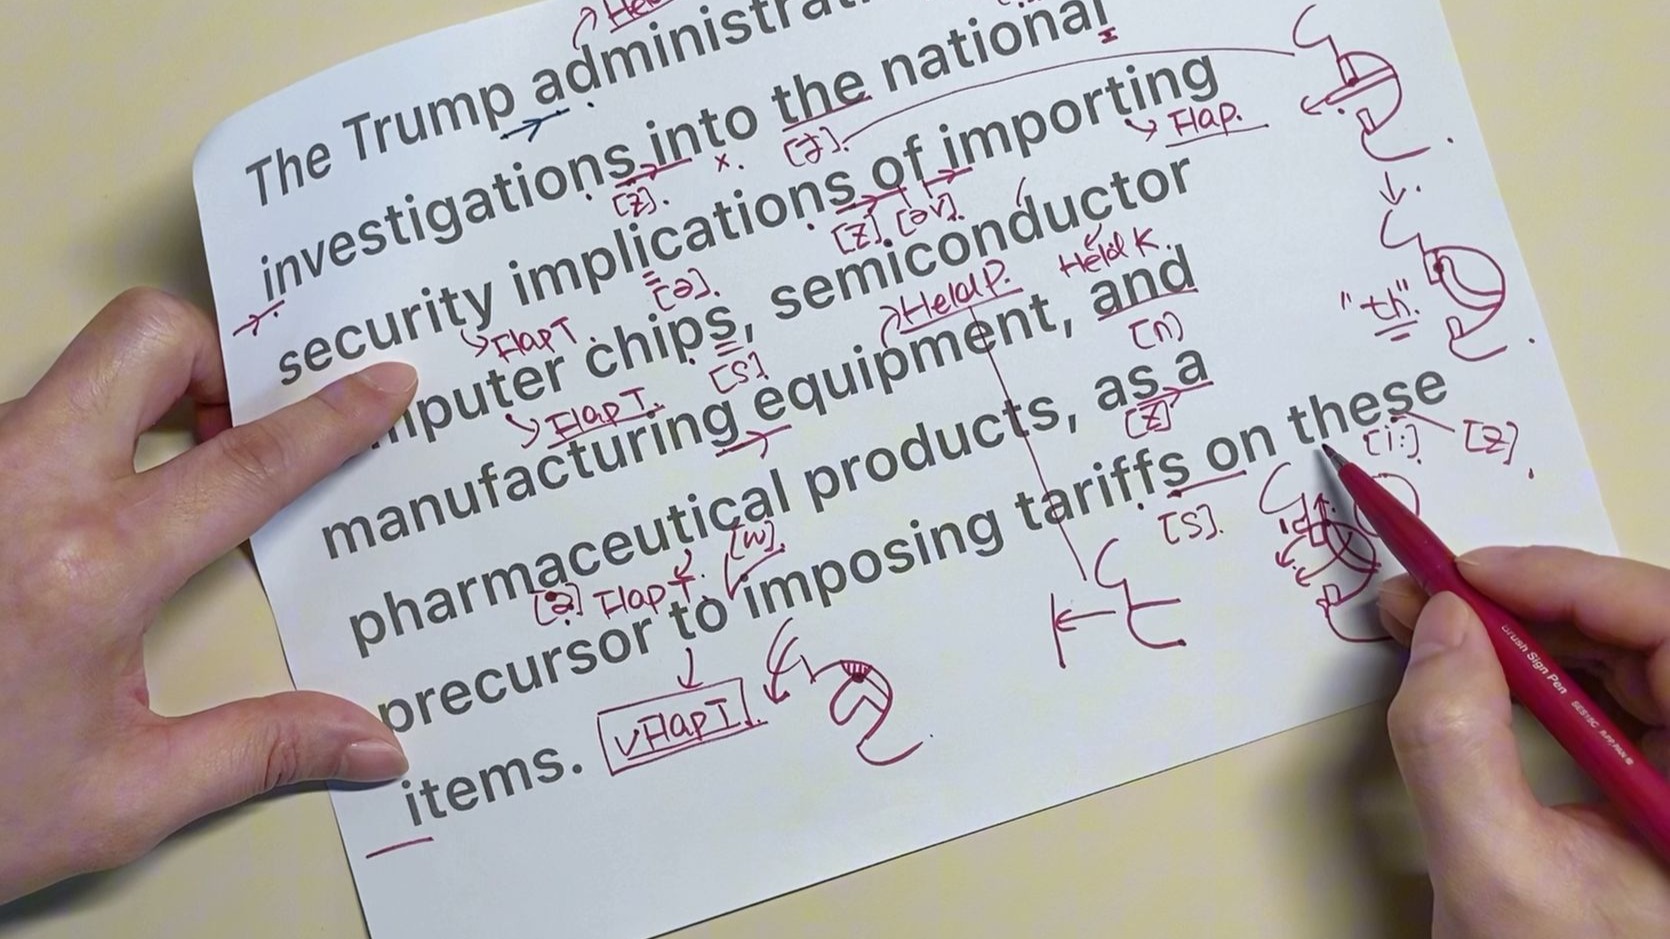 Held
The Trump administrati
investigations into the national
[z]. x. [ɟ].
security implications of importing
Flap.
[z] [əv].
[ə].
Flap T
mputer chips, semiconductor
[s] Held P. Held K.
Flap T.
manufacturing equipment, and
[n]
"th".
pharmaceutical products, as a
[z]
[ə] Flap T. [w].
precursor to imposing tariffs on these
[s]. [i:] [z]
items. vFlap T.
Brush Sign Pen